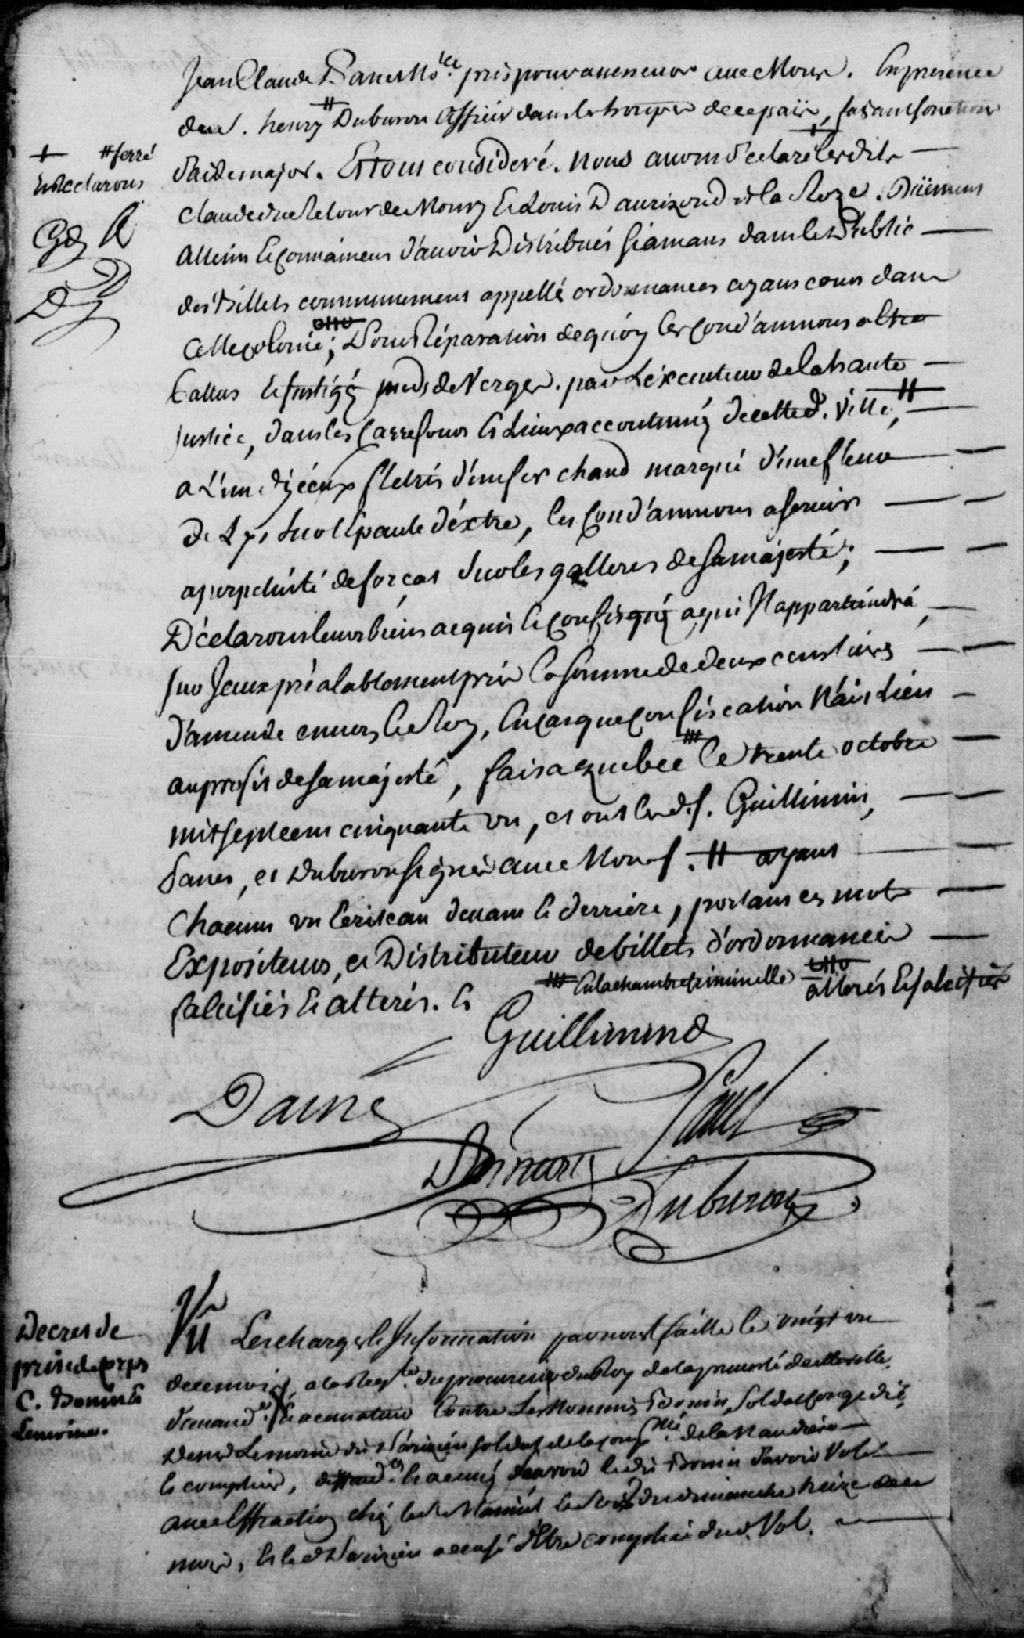 Jean Claude Panet No.re pris pour assesseur avec Nous. En presence
du S. henry # Duburon officier dans les troupes de ce païs, faisant fonction
d'aide major. Et tout consideré. nous avons declaré lesdits —
+ # ferré
Et declarons
Claude dit de Moury Et Louis D la Roze. Duëment
Atteins Et convaincus d'avoir Distribués sciamans dans le Public —
des Billets communement appellé ordonnances ayans cours dans
Cette colonie; Pour Réparation de quoy les cond'amnons a être
Battus Et fustigé nuds de Verges. par L'éxecuteur de la haute —
Justice, dans les Carrefours Et Lieux accoutumés de cette d. Ville, # —
a L'un d'iceux flétris d'un fer chaud marqué d'une fleur — —
De Lys sur l'épaule déxtre, les cond'amnons a servir — —
a perpétuité de forçat sur les galleres de sa majesté; — —
Déclarons leurs biens acquis Et confisqué a qui Il appartiendra, —
sur Iceux préalablement pris la somme de deux cent livres — —
d'amende envers le Roy, En cas que confiscation N'ait Lieu —
au profit de sa majesté, fait a quebec le trente octobre —
mil sept cent cinquante un, et ont lesd. S. Guillimin, — —
Panet, et Duburon signé avec Nous. # ayans — —
Chacun un Ecriteau devant Et derriere, portans ces mots —
Expositeurs, et Distributeurs de billets d'ordonnances —
falcifiés Et alterés. Et # En la chambre Criminelle alterés Et falcifiés
Guillimin
Daine
Panet
Duburon
Decret de
prise de corps
C. Bonin Et
Lemoine.
Vu Les charges Et Information par nous faitte le vingt un
de ce mois, a la Req.te du procureur du Roy de la prevosté de cette ville
demand.r Et accusateur Contre Les Nommés Bonin, Soldat congedié
Et Lemoine dit Parisien soldat de la comp.nie de la Naudiere —
le complice, deffand.rs Et accusés savoir le dit Bonin d'avoir Volé
avec Effraction chés le S. le du dimanche treize de ce
mois, Et led. Parisien accusé d'Etre complice dud. Vol. —